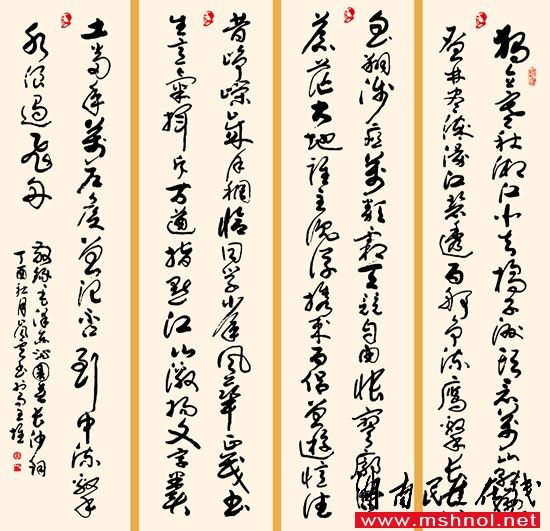 独立寒秋湘江北去橘子洲头看万山
层林尽染漫江碧透百舸争流鹰击长
鱼翔浅底万类霜天竞自由怅寥廓
苍茫大地谁主沉浮携来百侣曾游忆往
昔峥嵘岁月稠恰同学少年风华正茂书
生意气挥斥方遒指点江山激扬文字粪
土当年万户侯曾记否到中流击
水浪遏飞舟
敬录毛泽东沁园春长沙词
丁酉秋月
南民在线
www.mshnol.net